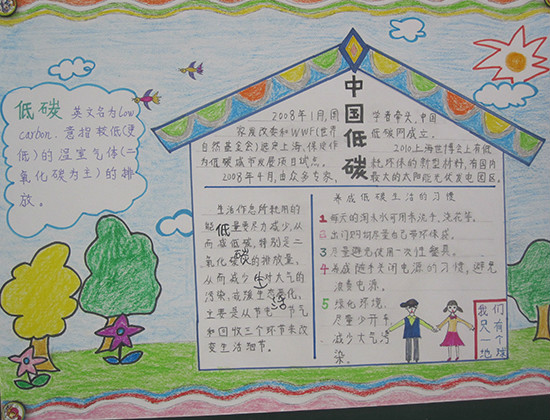 低碳 英文名为low
carbon. 意指较低(更
低)的温室气体(二
氧化碳为主)的排
放。
中国低碳
2008年1月,国
家发改委和WWF(世界
自然基金会)选定上海、保定作
为低碳城市发展项目试点。
2008年4月,由众多专家,
学者牵头,中国
低碳网成立。
2010上海世博会上有低
耗环保的新型材料,有国内
最大的太阳能光伏发电园区。
生活作息所耗用的
能量要尽力减少,从
而减低碳,特别是二
氧化碳的排放量,
从而减少对大气的
污染,减缓生态恶化,
主要是从节电 节气
和回收三个环节来改
变生活细节。
低碳生活
养成低碳生活的习惯
1 每天的淘米水可用来洗手、浇花等。
2 出门购物尽量自己带环保袋。
3 尽量避免使用一次性餐具。
4 养成随手关闭电源的习惯,避免
浪费电源。
5 绿化环境。
尽量少开车
减少大气污
染。
我们
只有
一个
地球